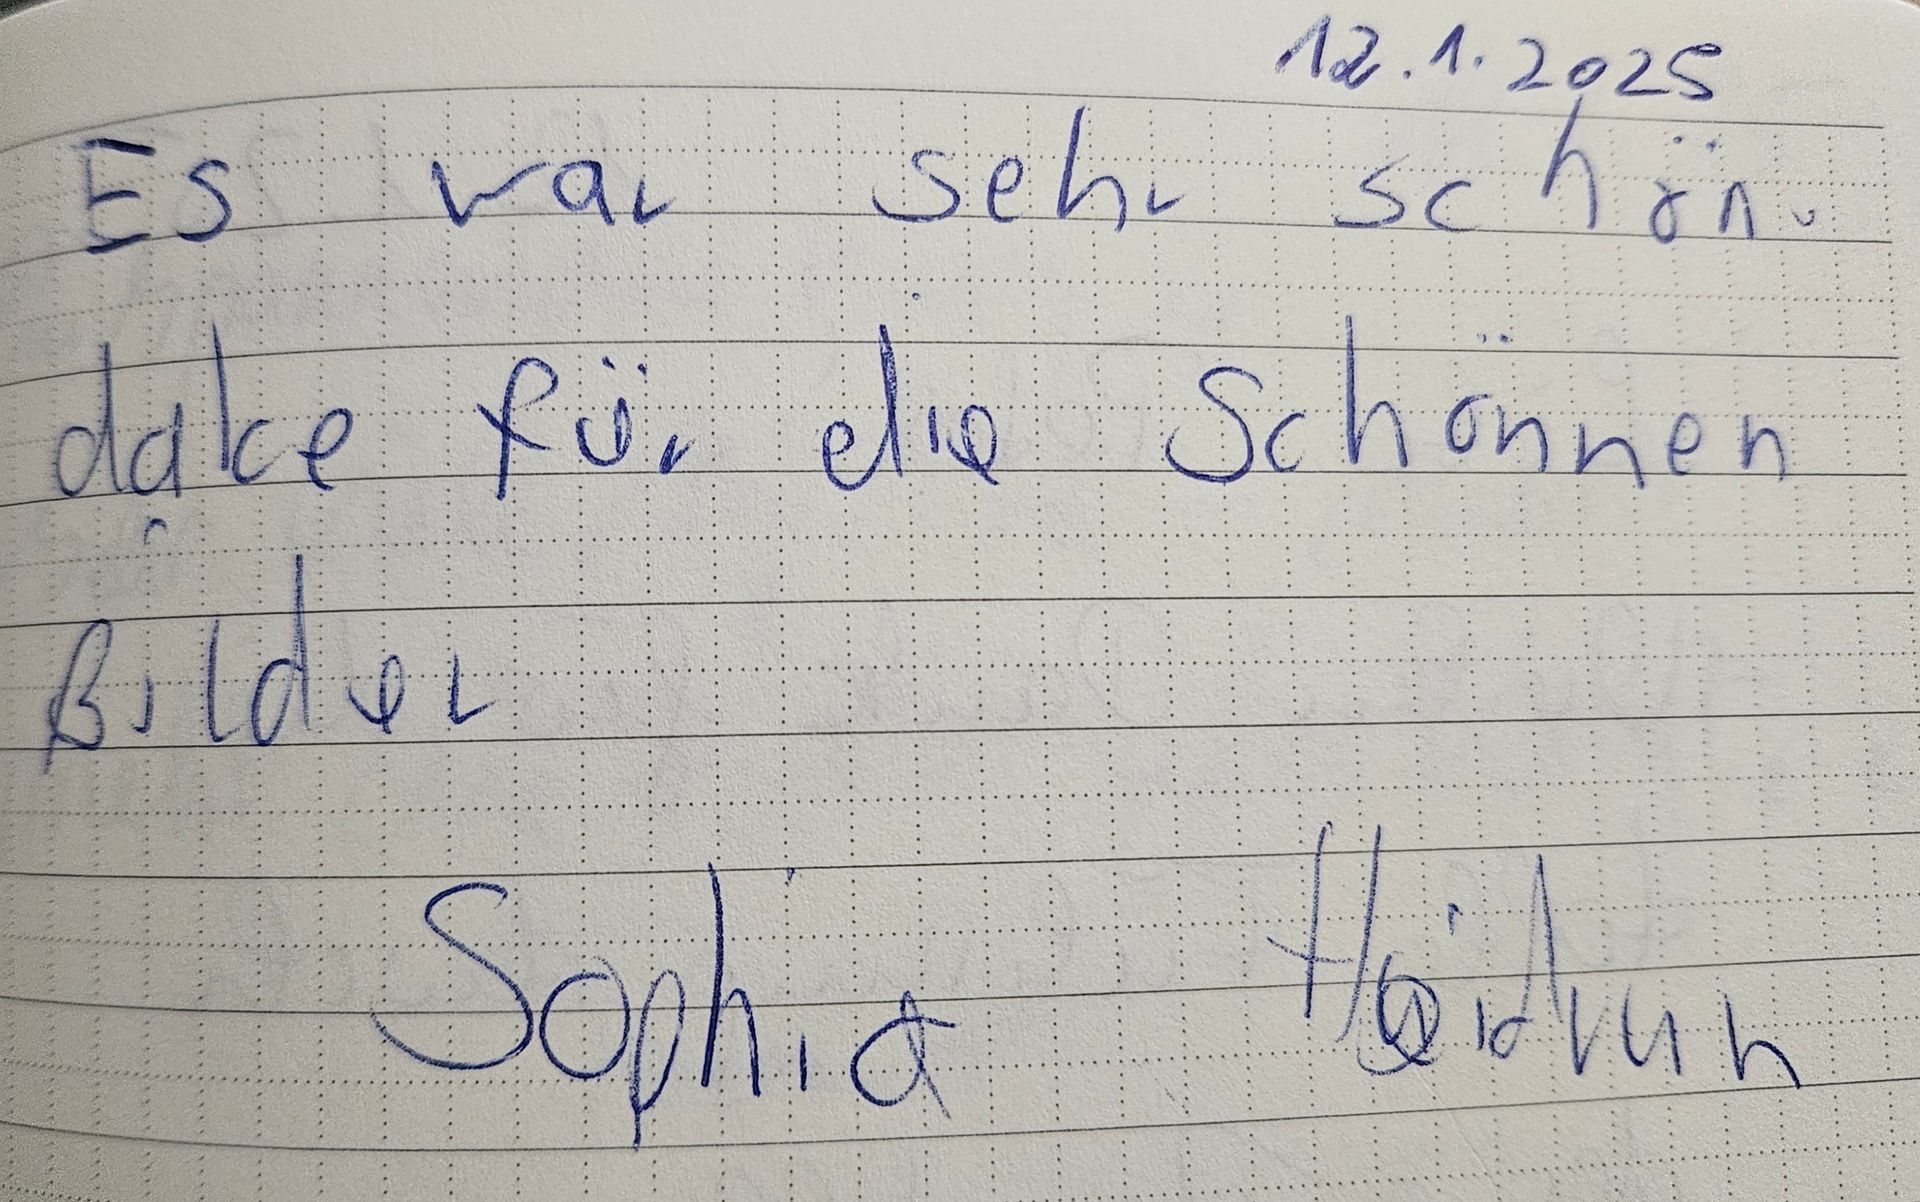 12.1.2025
Es war sehr schön.
danke für die Schönnen
Bilder
Sophia Heidrun